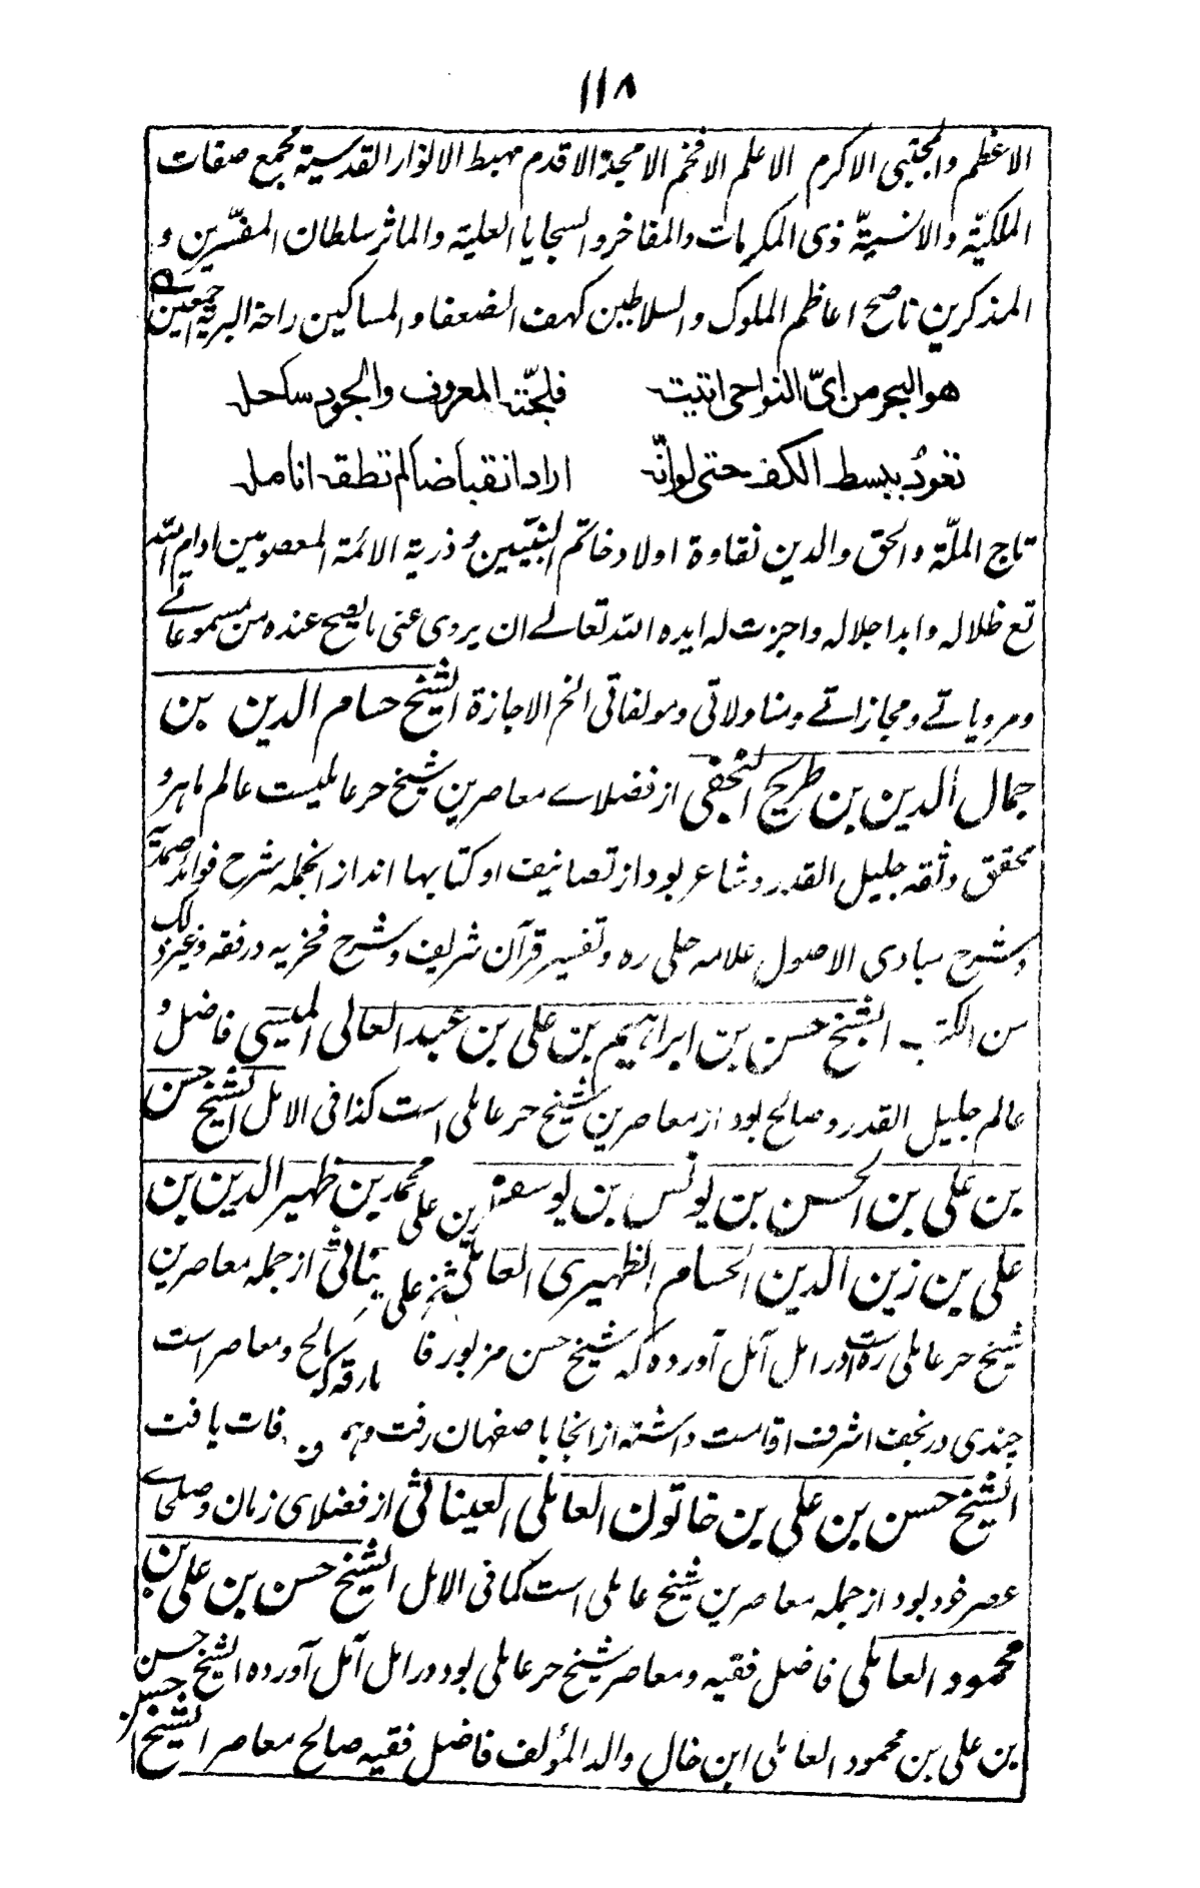 ١١٨
الاعظم والمجتبی الاکرم الاعلم الافخم الامجد الاقدم مهبط الانوار القدسیة مجمع صفات
الملکیّة والانسیّة ذی المکرمات والمفاخر والسجایا العلیة والماثر سلطان المفسّرین و
المذکرین ناصح اعاظم الملوک والسلاطین کهف الضعفا والمساکین راحة البریة اجمعین
هو البحر من ایّ النواحی اتیته فلجّته المعروف والجود ساحله
تعوّد ببسط الکف حتی لو انّه اراد انقباضا لم تطقه انامله
تاج الملّة والحق والدین نقاوة اولاد خاتم النبیّین و ذریة الائمة المعصومین ادام الله
تع ظلاله وابد اجلاله واجزت له ایده الله تعالے ان یروی عنی ما یصح عنده من مسموعاتے
ومرویاتے ومجازاتے ومناولاتی ومولفاتی الخ الاجازة الشیخ حسام الدین بن
جمال الدین بن طریح النجفی از فضلاے معاصرین شیخ حر عاملیست عالم ماهر و
محقق وثقه جلیل القدر وشاعر بود از تصانیف او کتابها اند از انجمله شرح فواید صمدیه
وشرح مبادی الاصول علامه حلی ره وتفسیر قرآن شریف وشرح فخریه در فقه وغیر ذلک
من الکتب الشیخ حسن بن ابراهیم بن علی بن عبد العالی المیسی فاضل و
عالم جلیل القدر وصالح بود از معاصرین شیخ حر عاملی است کذا فی الامل الشیخ حسن
بن علی بن الحسن بن یونس بن یوسف بن علی محمد بن ظهیر الدین بن
علی بن زین الدین الحسام الظهیری العاملی ثم علی یناثی از جمله معاصرین
شیخ حر عاملی ره است در امل آمل آورده که شیخ حسن مزبور فا مارقه که صالح ومعاصر است
چندی در نجف اشرف اقامت داشته از انجا باصفهان رفت وهم وفات یافت
الشیخ حسن بن علی بن خاتون العاملی العیناثی از فضلای زمان وصلحاے
عصر خود بود از جمله معاصرین شیخ عاملی است کما فی الامل الشیخ حسن بن علی بن
محمود العاملی فاضل فقیه ومعاصر شیخ حر عاملی بود در امل آمل آورده الشیخ حسن
بن علی بن محمود العاملی ابن خال والد المؤلف فاضل فقیه صالح معاصر الشیخ حسن